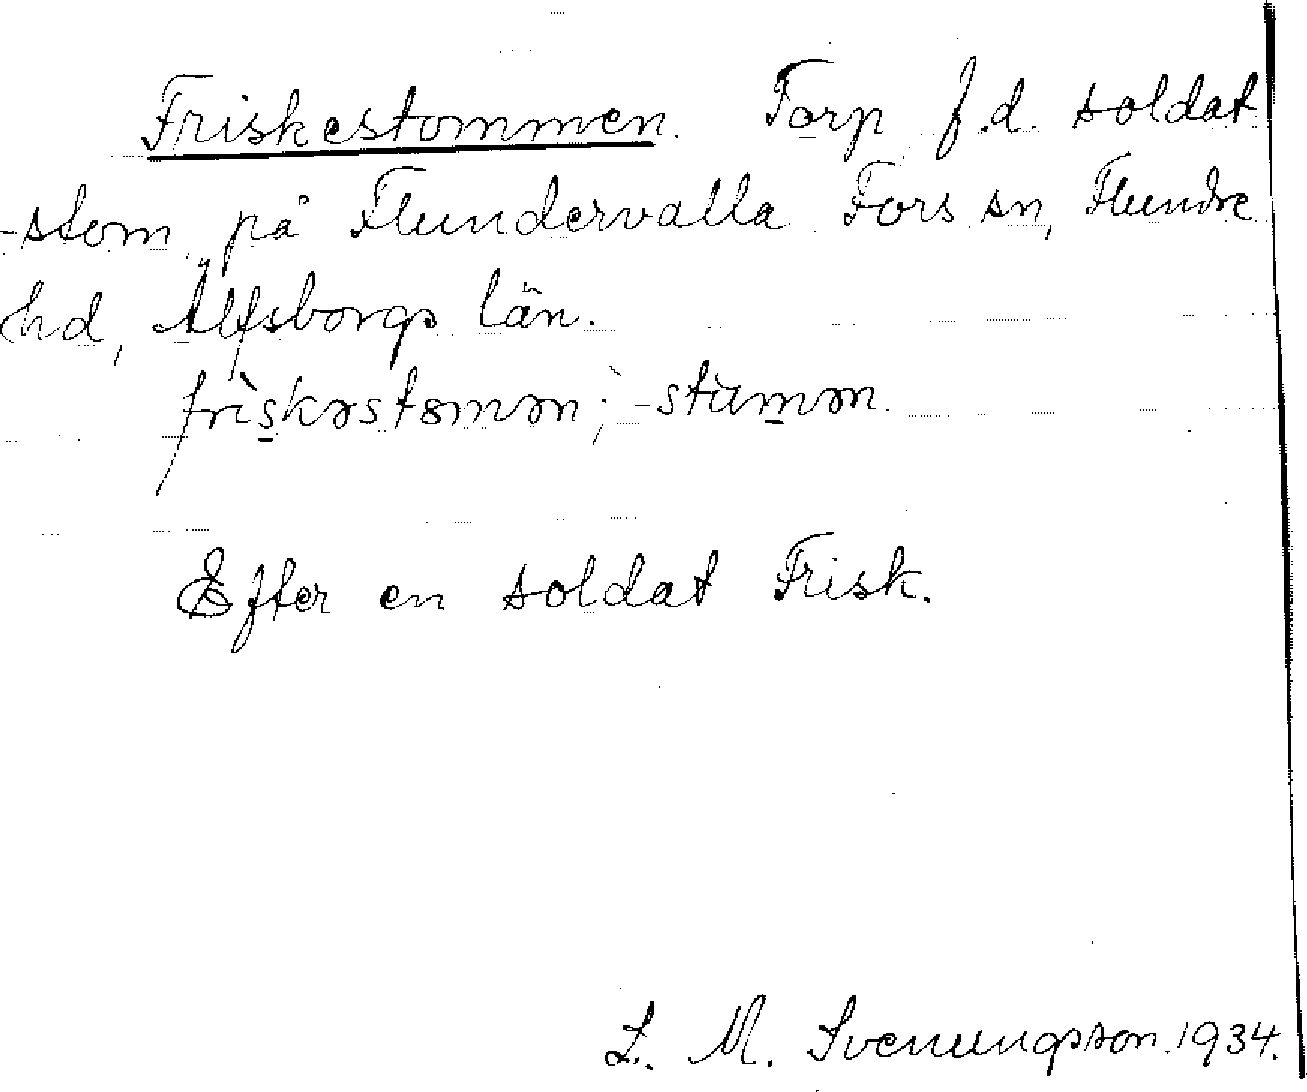 Friskestommen. Torp f.d. soldat
-stom på Flundervalla Fors sn, Flundre
hd, Älfsborgs län.
frìskəstomən; -stùmən.
Efter en soldat Frisk.
L. M. Svenungsson 1934.